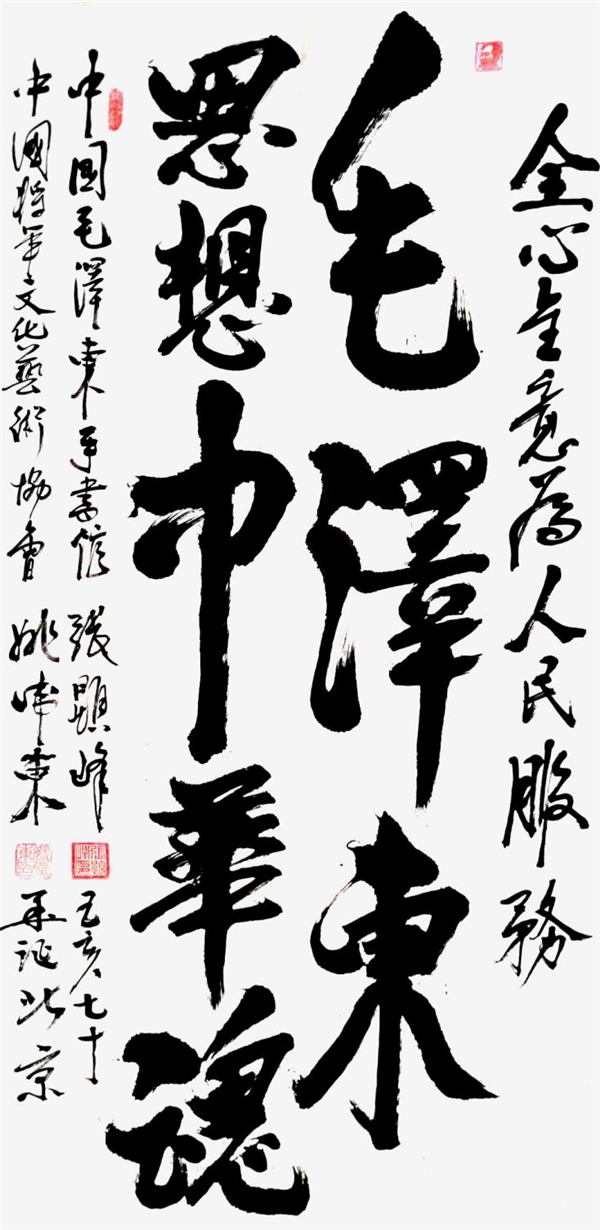 全心全意為人民服務
毛澤東
思想中華魂
中國毛澤東手書 張顯峰 己亥七十
中國將軍文化藝術協會 姚 東 北京